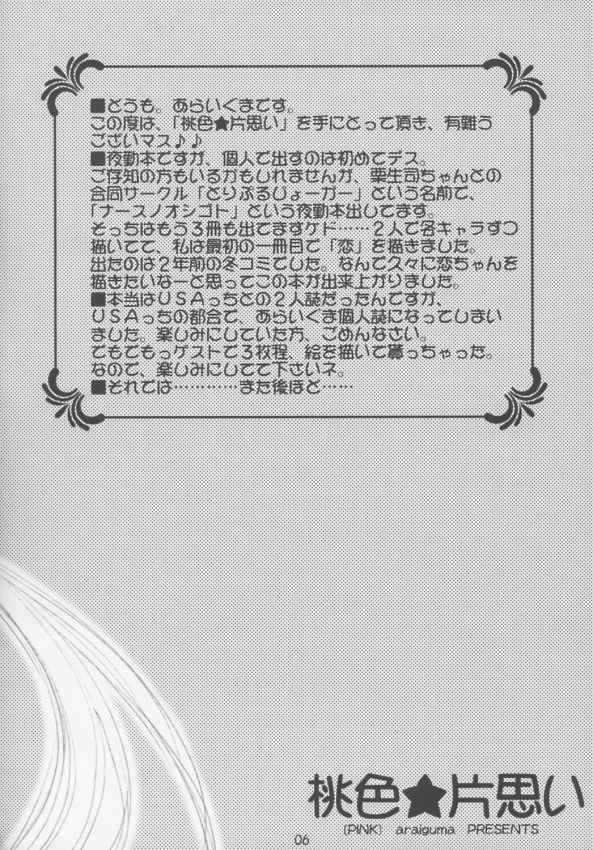 ■どうも。あらいぐまです。
この度は、「桃色★片思い」を手にとって頂き、有難う
ございマス♪♪
■夜勤本ですが、個人で出すのは初めてデス。
ご存知の方もいるかもしれませんが、栗生司ちゃんとの
合同サークル「とりぷるじょーガー」という名前で、
「ナースノオシゴト」という夜勤本出してます。
そっちはもう３冊も出てますケド……２人で各キャラずつ
描いてて、私は最初の一冊目で「恋」を描きました。
出たのは２年前の冬コミでした。なんで久々に恋ちゃんを
描きたいなーと思ってこの本が出来上がりました。
■本当はＵＳＡっちとの２人誌だったんですが、
ＵＳＡっちの都合で、あらいぐま個人誌になってしまい
ました。楽しみにしていた方、ごめんなさい。
でもでもっゲストで３枚程、絵を描いて貰っちゃった。
なので、楽しみにしてて下さいネ。
■それでは…………また後ほど……
桃色★片思い
［PINK］ araiguma PRESENTS
06